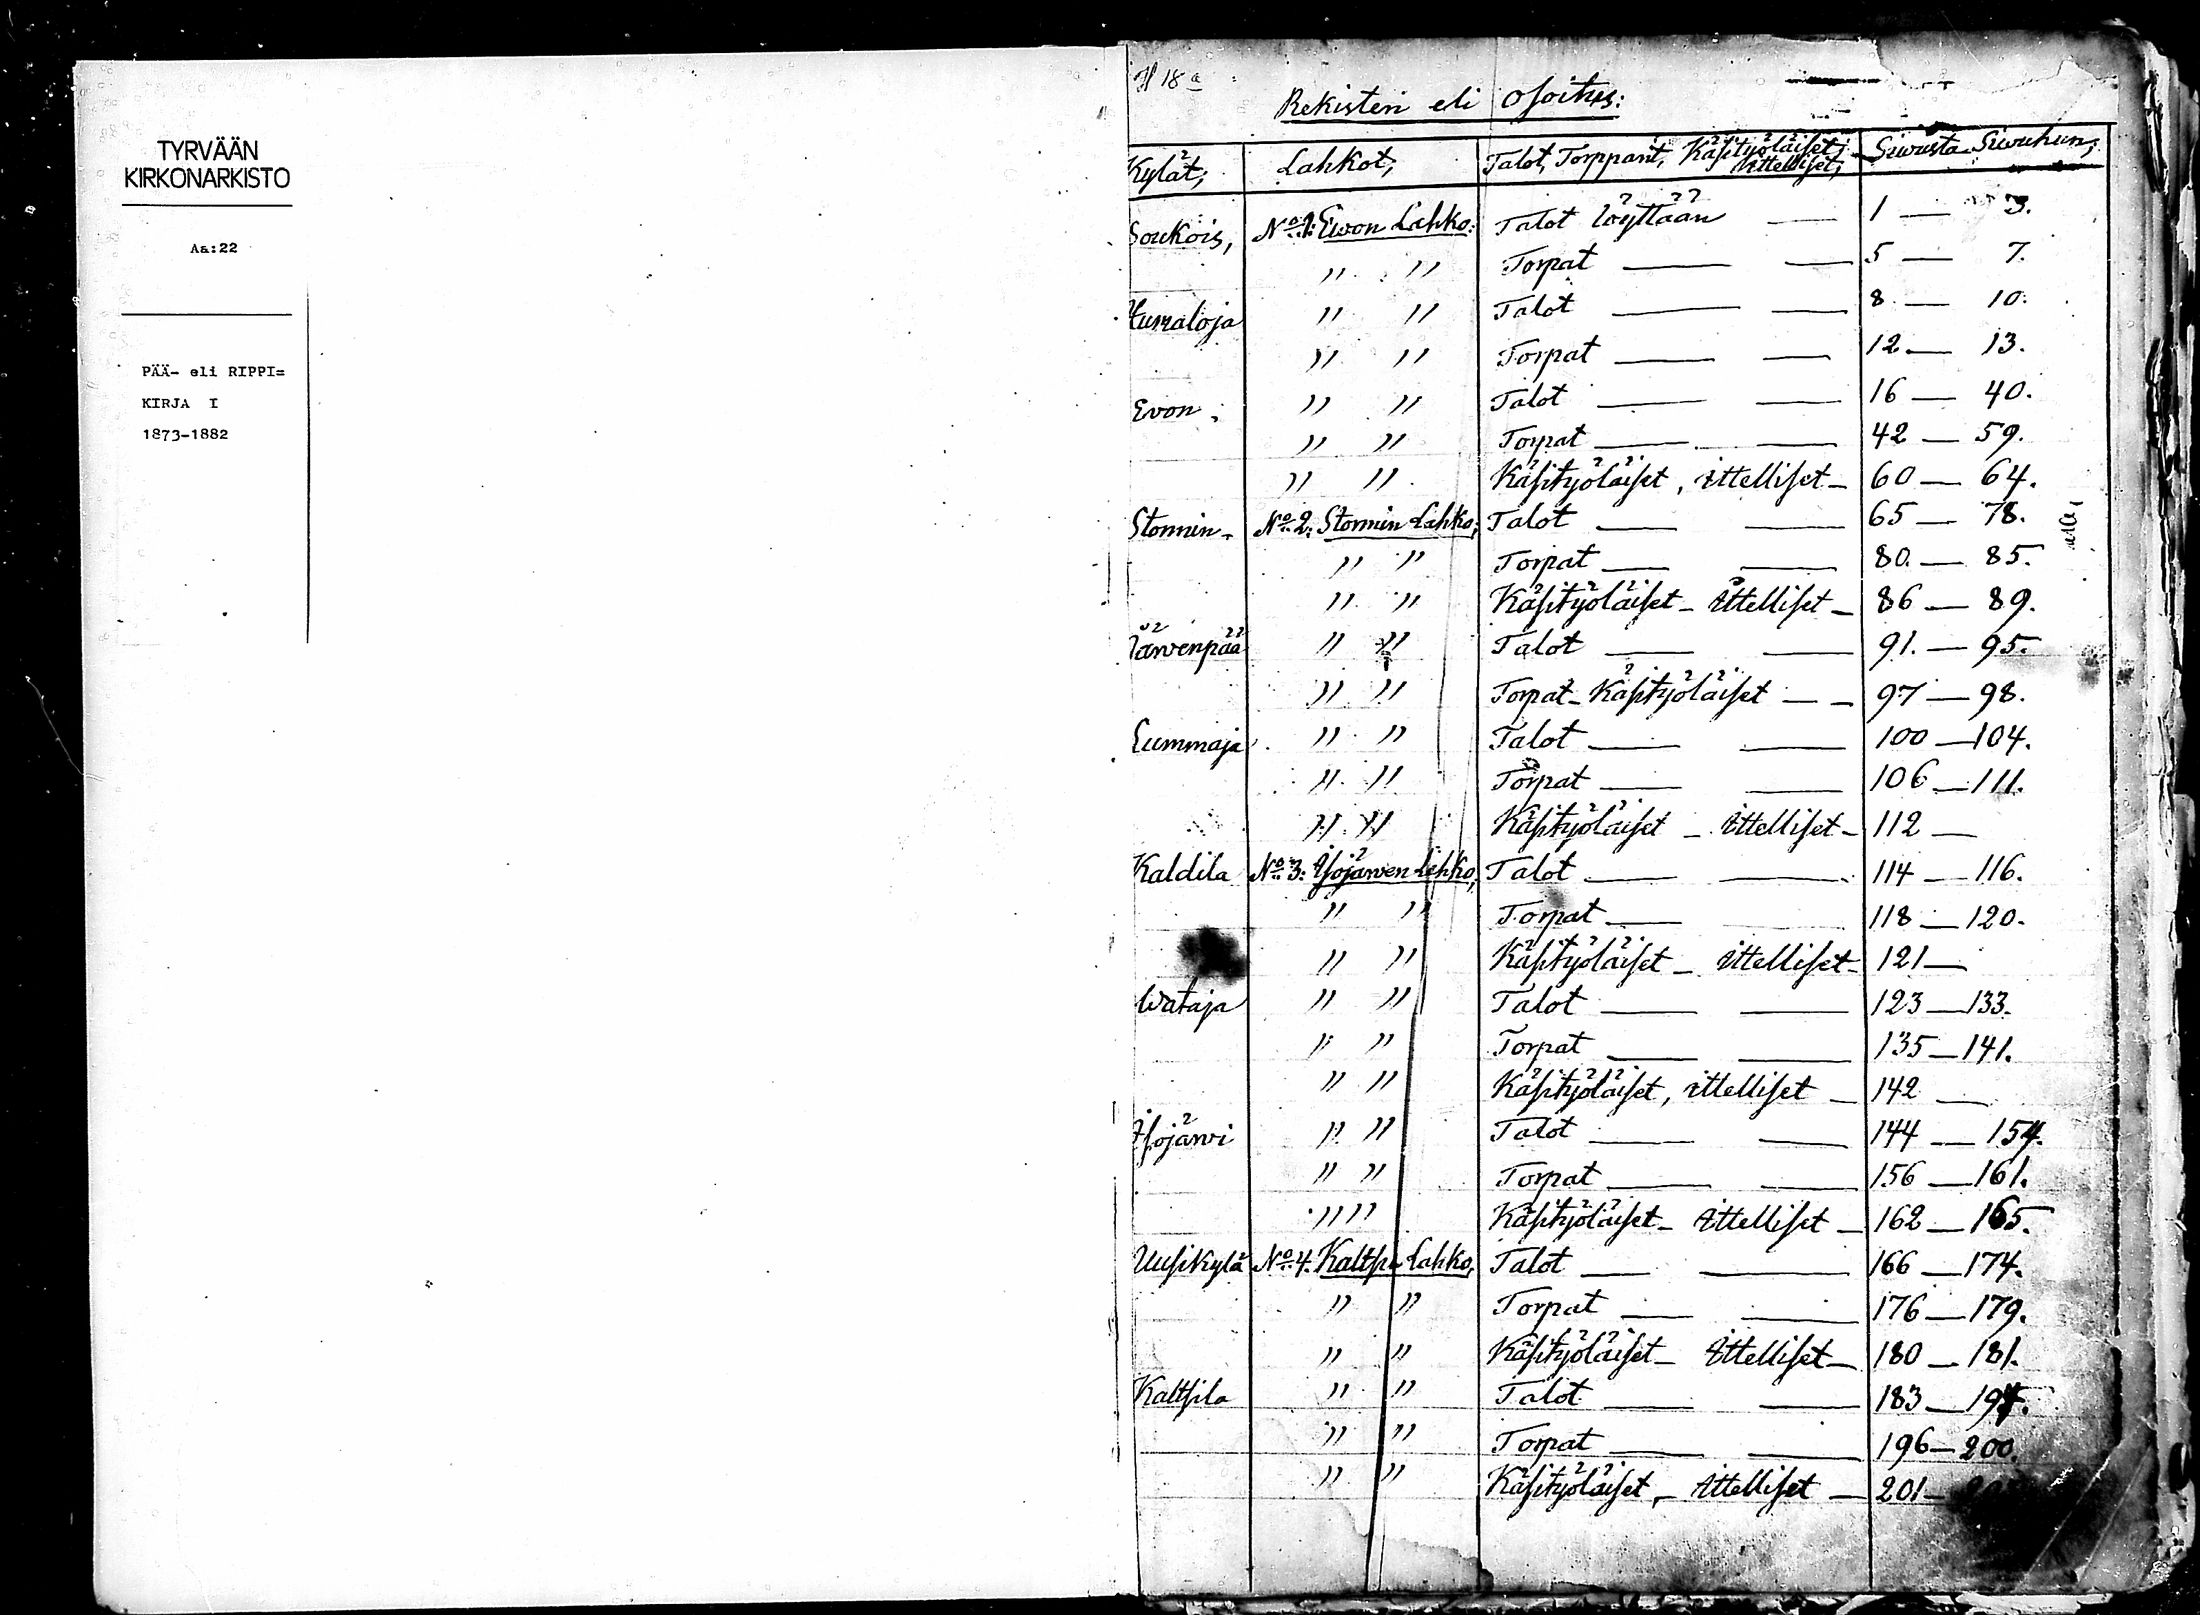 TYRVÄÄN
KIRKONARKISTO
Aa:22
PÄÄ- eli RIPPI=
KIRJA I
1873-1882
Rekisteri eli Osoitus:
Kylät; Lahkot, Talot, Torpparit, Käsityöläiset, Ittelliset, Siwusta Siwuhun,
Soukois, No 1: Ewon Lahko: Talot löyttään — 1 — 3.
" " Torpat — — 5 — 7.
Humaloja " " Talot — — 8 — 10.
" " Torpat — — 12 — 13.
Evon " " Talot — — 16 — 40.
" " Torpat — — 42 — 59.
" " Käsityöläiset, ittelliset — 60 — 64.
Stormin No 2: Stormin Lahko, Talot — — 65 — 78.
" " Torpat — — 80. — 85.
" " Käsityöläiset — Ittelliset — 86 — 89.
Järwenpää " " Talot — — 91. — 95.
" " Torpat — Käsityöläiset — — 97 — 98.
Lummaja " " Talot — — 100 — 104.
" " Torpat — — 106 — 111.
" " Käsityöläiset — Ittelliset — 112 —
Kaldila No 3: Isojärwen Lahko, Talot — — 114 — 116.
" " Torpat — — 118 — 120.
" " Käsityöläiset — Ittelliset — 121 —
Wataja " " Talot — — 123 — 133.
" " Torpat — — 135 — 141.
" " Käsityöläiset, ittelliset — 142 —
Isojärwi " " Talot — — 144 — 154.
" " Torpat — — 156 — 161.
" " Käsityöläiset — Ittelliset — 162 — 165.
Uusikylä No 4. Kaltsin Lahko, Talot — — 166 — 174.
" " Torpat — — 176 — 179.
" " Käsityöläiset — Ittelliset — 180 — 181.
Kaltsila " " Talot — — 183 — 194.
" " Torpat — — 196 — 200.
" " Käsityöläiset, — Ittelliset — 201 —